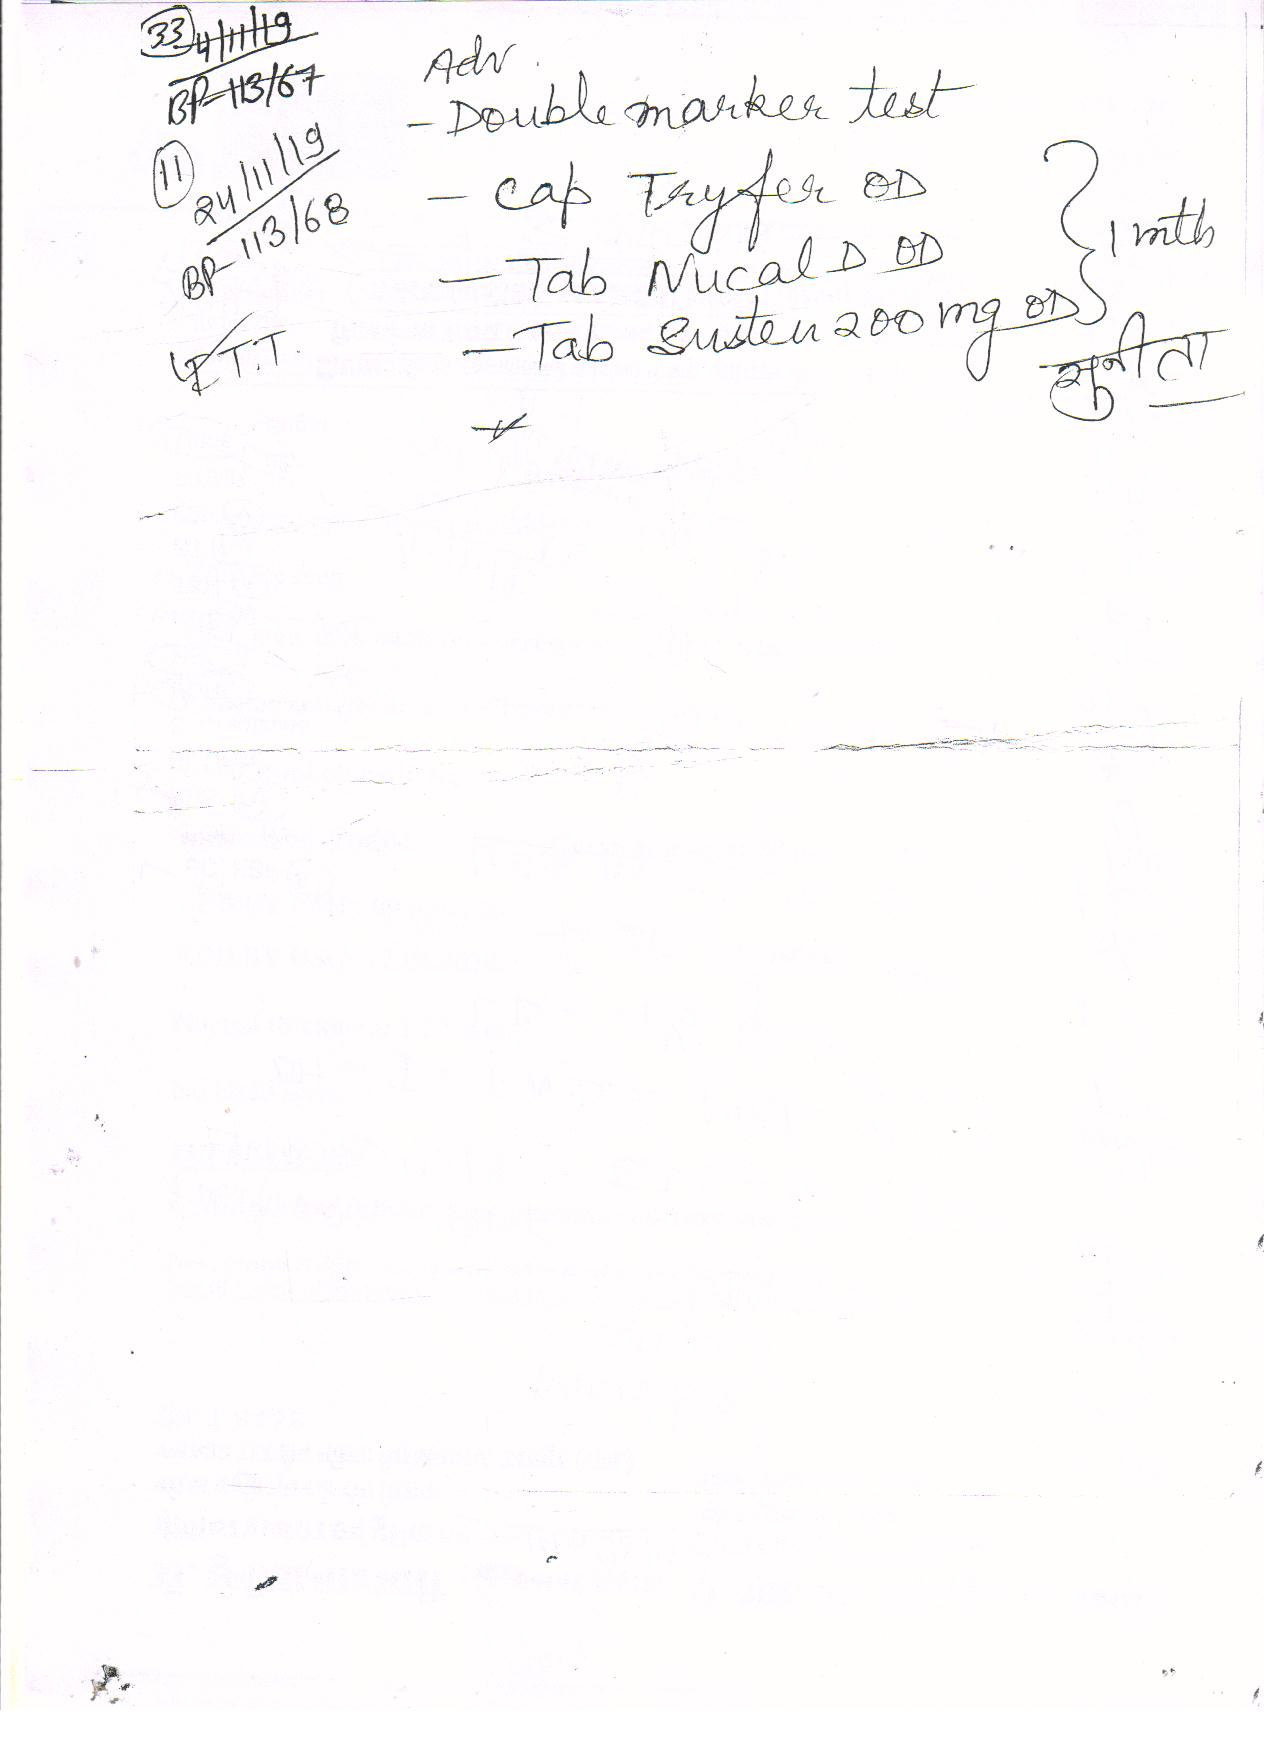 33 4/11/19
BP-113/67
11 24/11/19
BP-113/68
T.T.
Adv.
- Double marker test
- Cap Tryfer OD
- Tab Nucal D OD
- Tab Susten 200 mg OD
} 1 mth
सुनीता